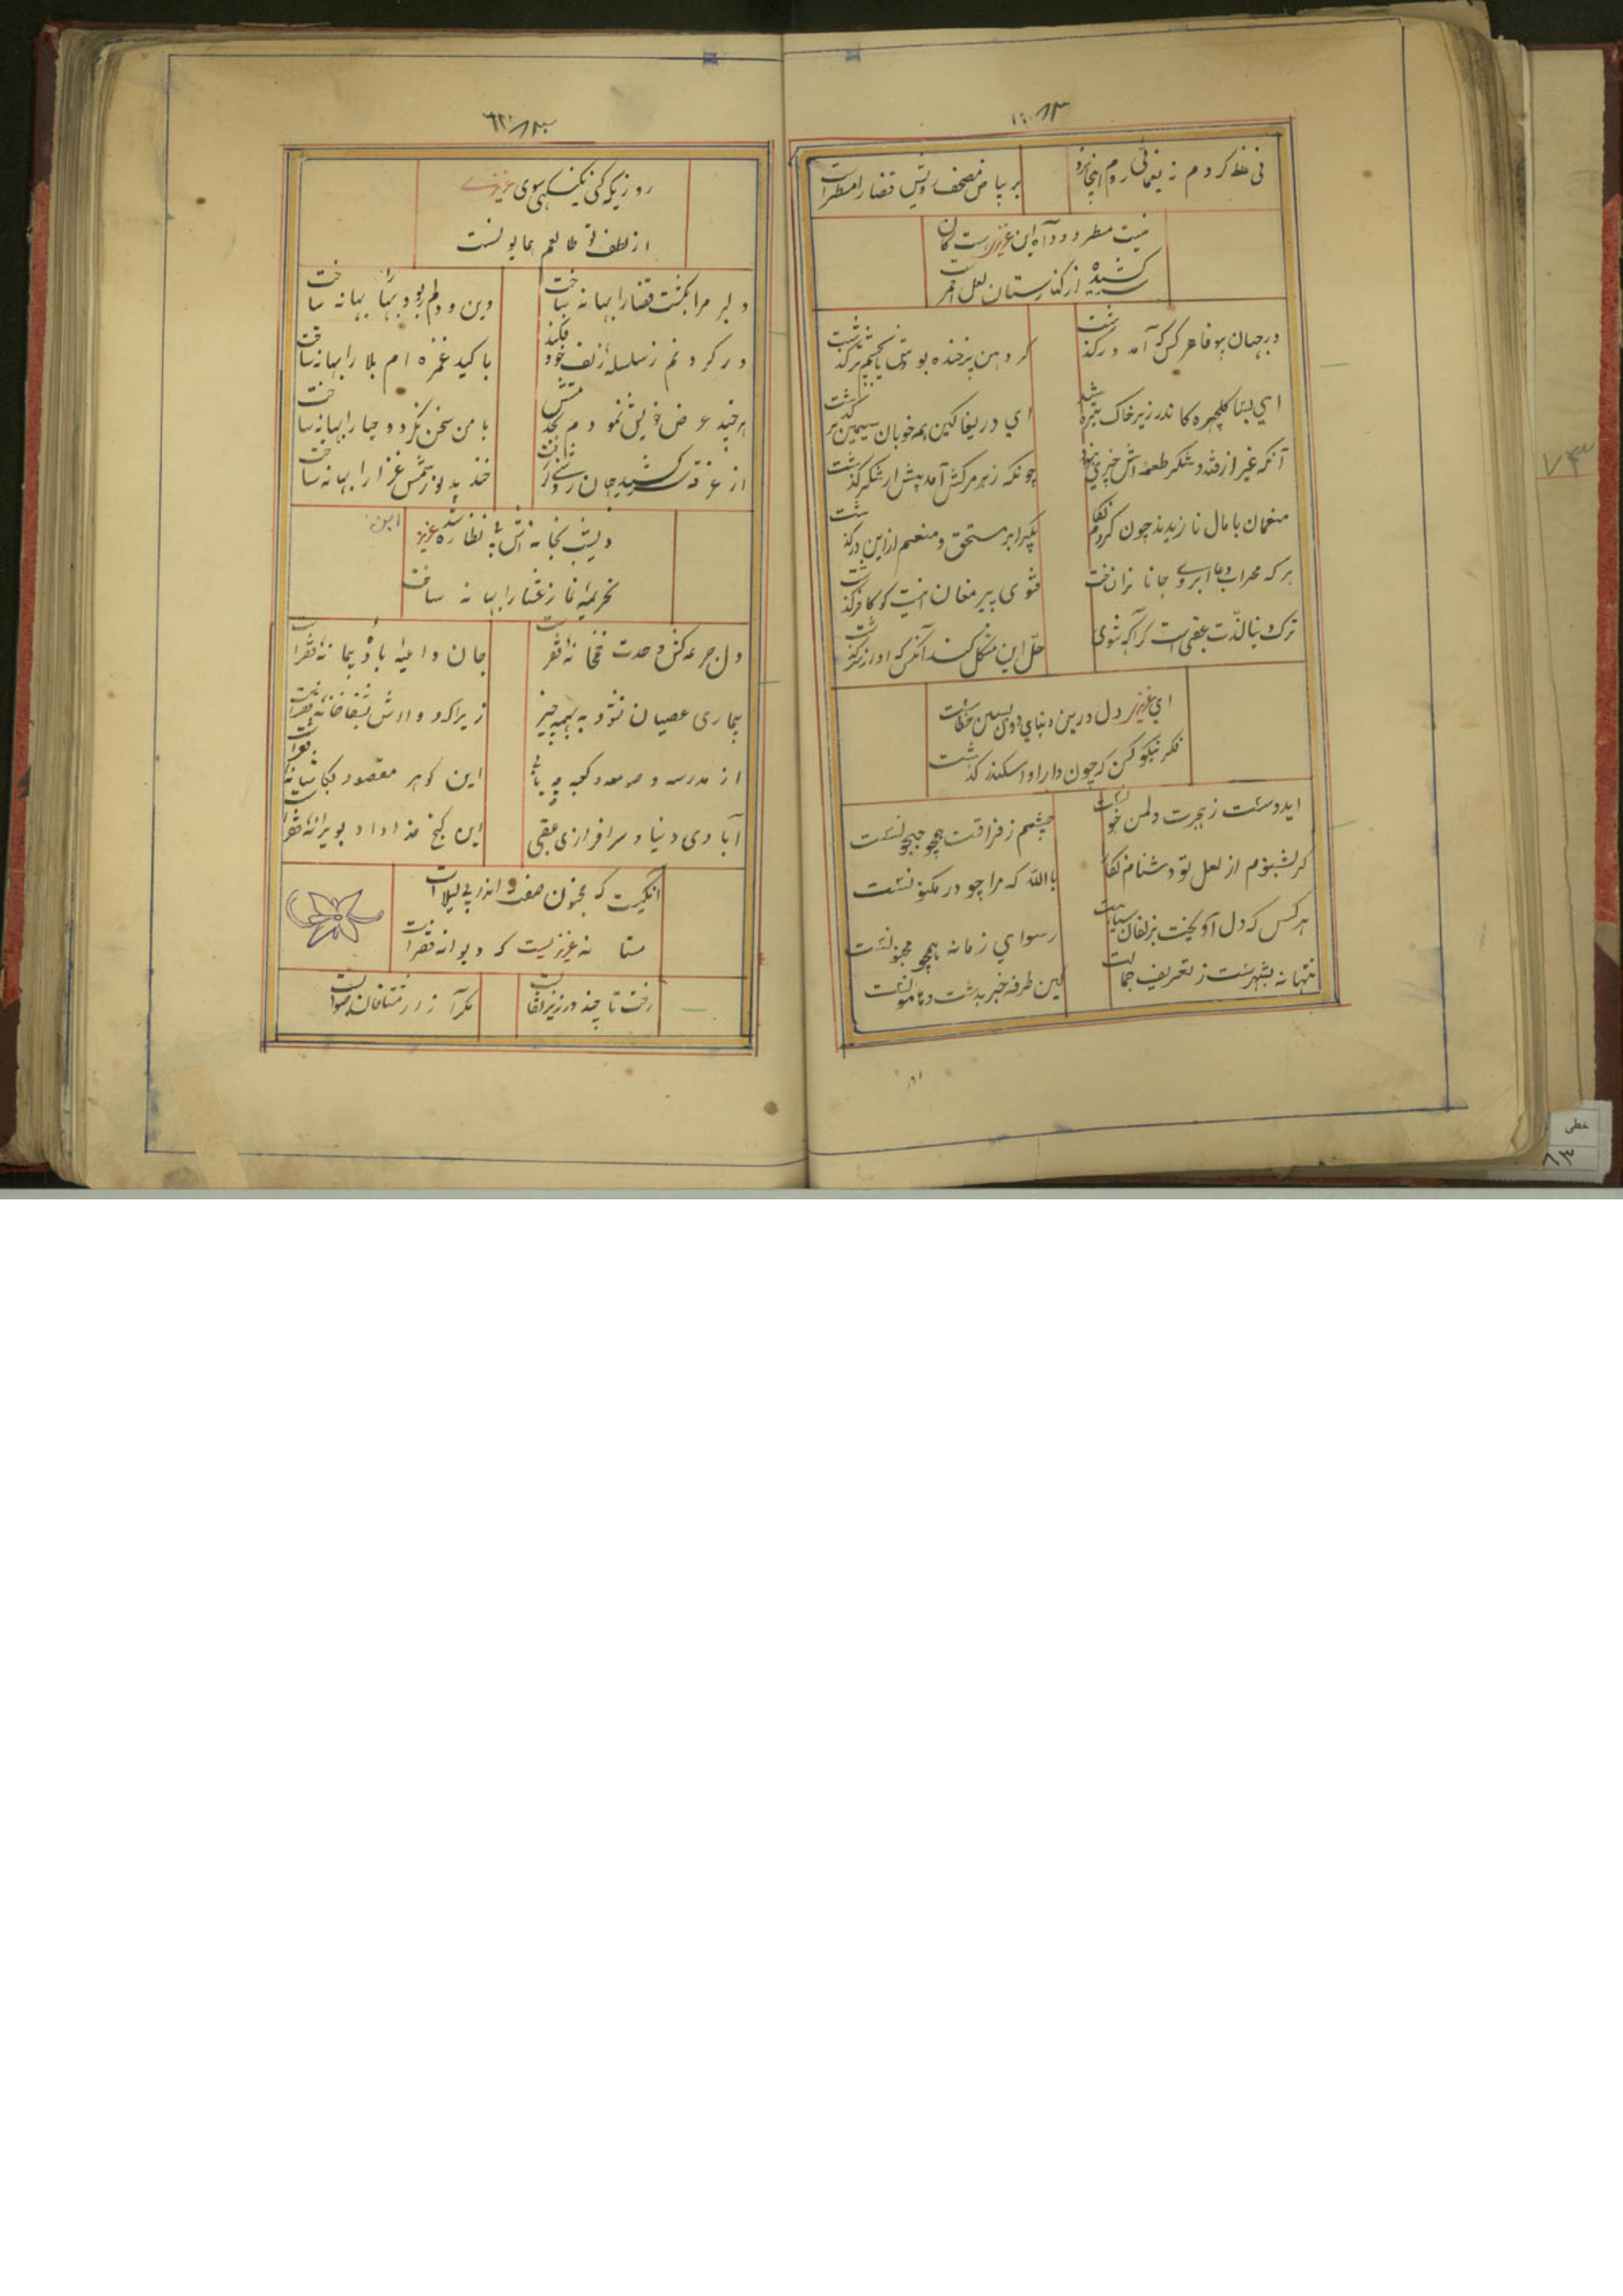 نی غلط کردم نه یغمائی روم اینجا زد
بر بیاض مصحف رویش قضا را مسطر است
نیست مسطر دود آه این عزیز است کان
کشیده از کنارستان لعل احمر است
در جهان بیوفا هر کس که آمد درگذشت
گر دهن پرخنده بودش یا بچشم تر گذشت
ای بسا گلچهره کاندر زیر خاک تیره شد
ای دریغا کین همه خوبان سیمین بر گذشت
آنکه غیر از قند و شکر طعمه اش چیزی نبود
چونکه زهر مرگش آمد پیش از شکر گذشت
منعمان با مال نازیدند چون کردم نگاه
یکسرا بر مستحق و منعم از این در گذشت
هر که محراب دعا ابروی جانانرا نساخت
فتوی پیر مغان اینست کو کافر گذشت
ترک دنیا لذت عقبی است گر آگه شوی
حل این مشکل کند آنکس که او از زر گذشت
ای عزیز دل درین دنیای دون بستن خطاست
فکر نیکو کن که چون دارا و اسکندر گذشت
ایدوست ز هجرت دل من خونست
چشمم ز فراقت همچو جیحونست
گر بشنوم از لعل تو دشنام نکو
بالله که مرا چو در مکنونست
هر کس که دل آویخت بزلفان سیاهت
رسوای زمانه همچو مجنونست
تنها نه بشهرست ز تعریف جمالت
کین طرفه خبر بدشت و هامونست
روزیکه کنی نگهی سوی عزیزی
از لطف تو طالعم همایونست
دلبر مرا بکشت قضا را بهانه ساخت
دین و دلم ربود بها را بهانه ساخت
در گردنم ز سلسله زلف خود فکند
با کید غمزه ام بلا را بهانه ساخت
هر چند عرض خویش نمودم بخدمتش
با من سخن نکرد و حیا را بهانه ساخت
از غرفه سر کشید جهان روشنی گرفت
خندید و نور شمس غزا را بهانه ساخت
دیشب بخانه اش به نظاره شد عزیز
تحریمه نماز عشا را بهانه ساخت
دل جرعه کش وحدت خمخانه فقر است
جان داعیه باده پیمانه فقر است
بیماری عصیان نشود به بهمه چیز
زیرا که دوااش بشفاخانه فقر است
از مدرسه و صومعه و کعبه چه یابی
این گوهر مقصود بکاشانه فقر است
آبادی دنیا و سرافرازی عقبی
این گنج خداداد بویرانه فقر است
آنکیست که مجنون صفت اندر پی لیلا است
مستانه عزیزیست که دیوانه فقر است
رخت تا چند در زیر نقابست
مگر آزار مشتاقان صوابست